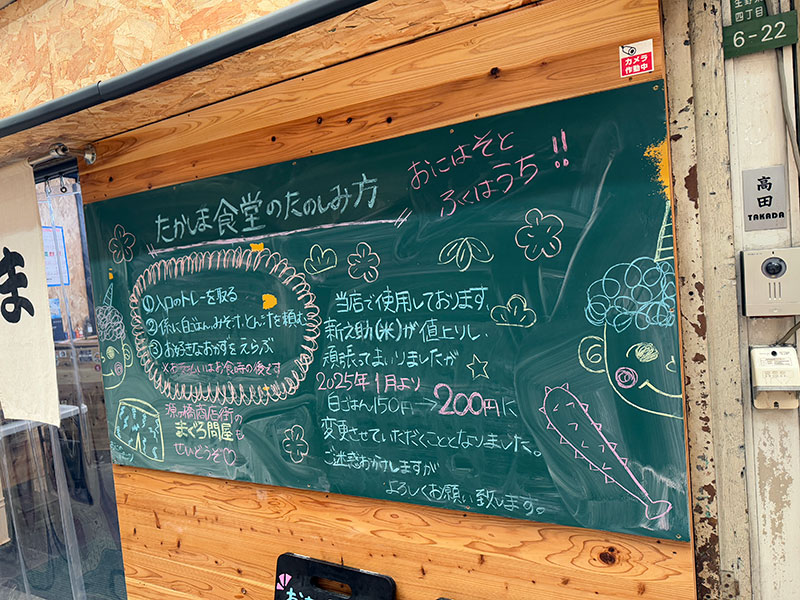 たかしま食堂のたのしみ方
おにはそと
ふくはうち!!
①入口のトレーを取る
②係に白ごはん、みそ汁、とん汁を頼む
③お好きなおかずをえらぶ
※お支払いはお食事の後です
商店街の
まぐろ問屋も
せいどうぞ♡
当店で使用しております、
新之助(米)が値上りし、
頑張ってまいりましたが
2025年1月より
白ごはん150円→200円に
変更させていただくこととなりました。
ご迷惑おかけしますが
よろしくお願い致します。
カメラ
作動中
四丁目
6-22
高田
TAKADA
ま